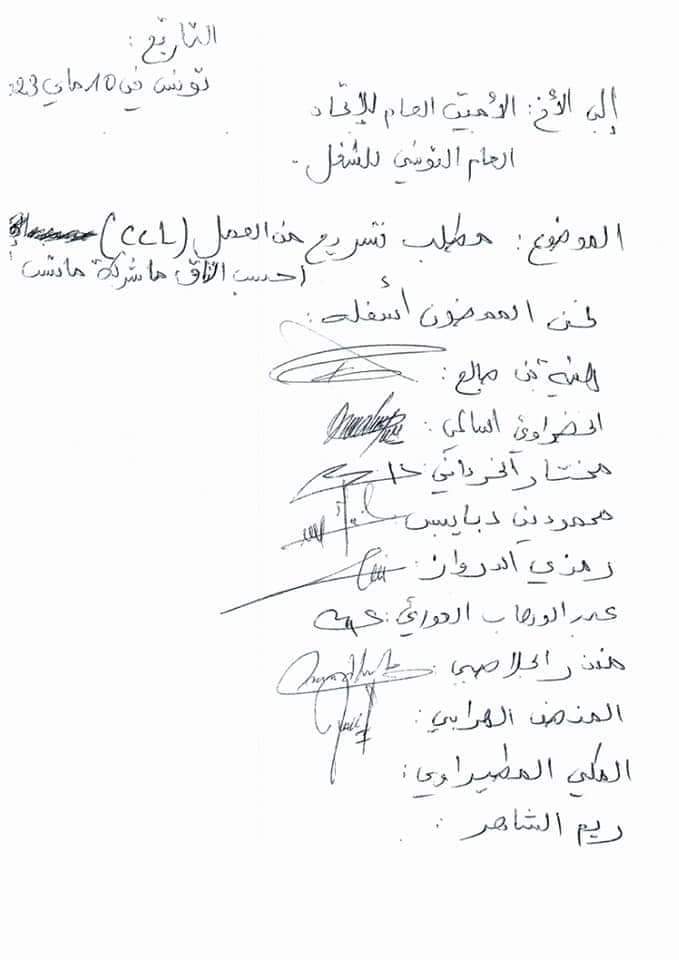 التاريخ:
تونس في 10 ماي 23
إلى الأخ: الأمين العام للإتحاد
العام التونسي للشغل.
الموضوع: مطلب تسريح من العمل (CCL)
نحن الممضون أسفله:
هنية بن صالح:
الخضراوي السالمي:
مختار الخرداني:
محمود بن دبابيس
رمزي الدروان:
عبد الوهاب العوراني:
منذر الجلاصي:
المنصف الهرابي:
المكي المطيراوي:
ريم الشاهر: